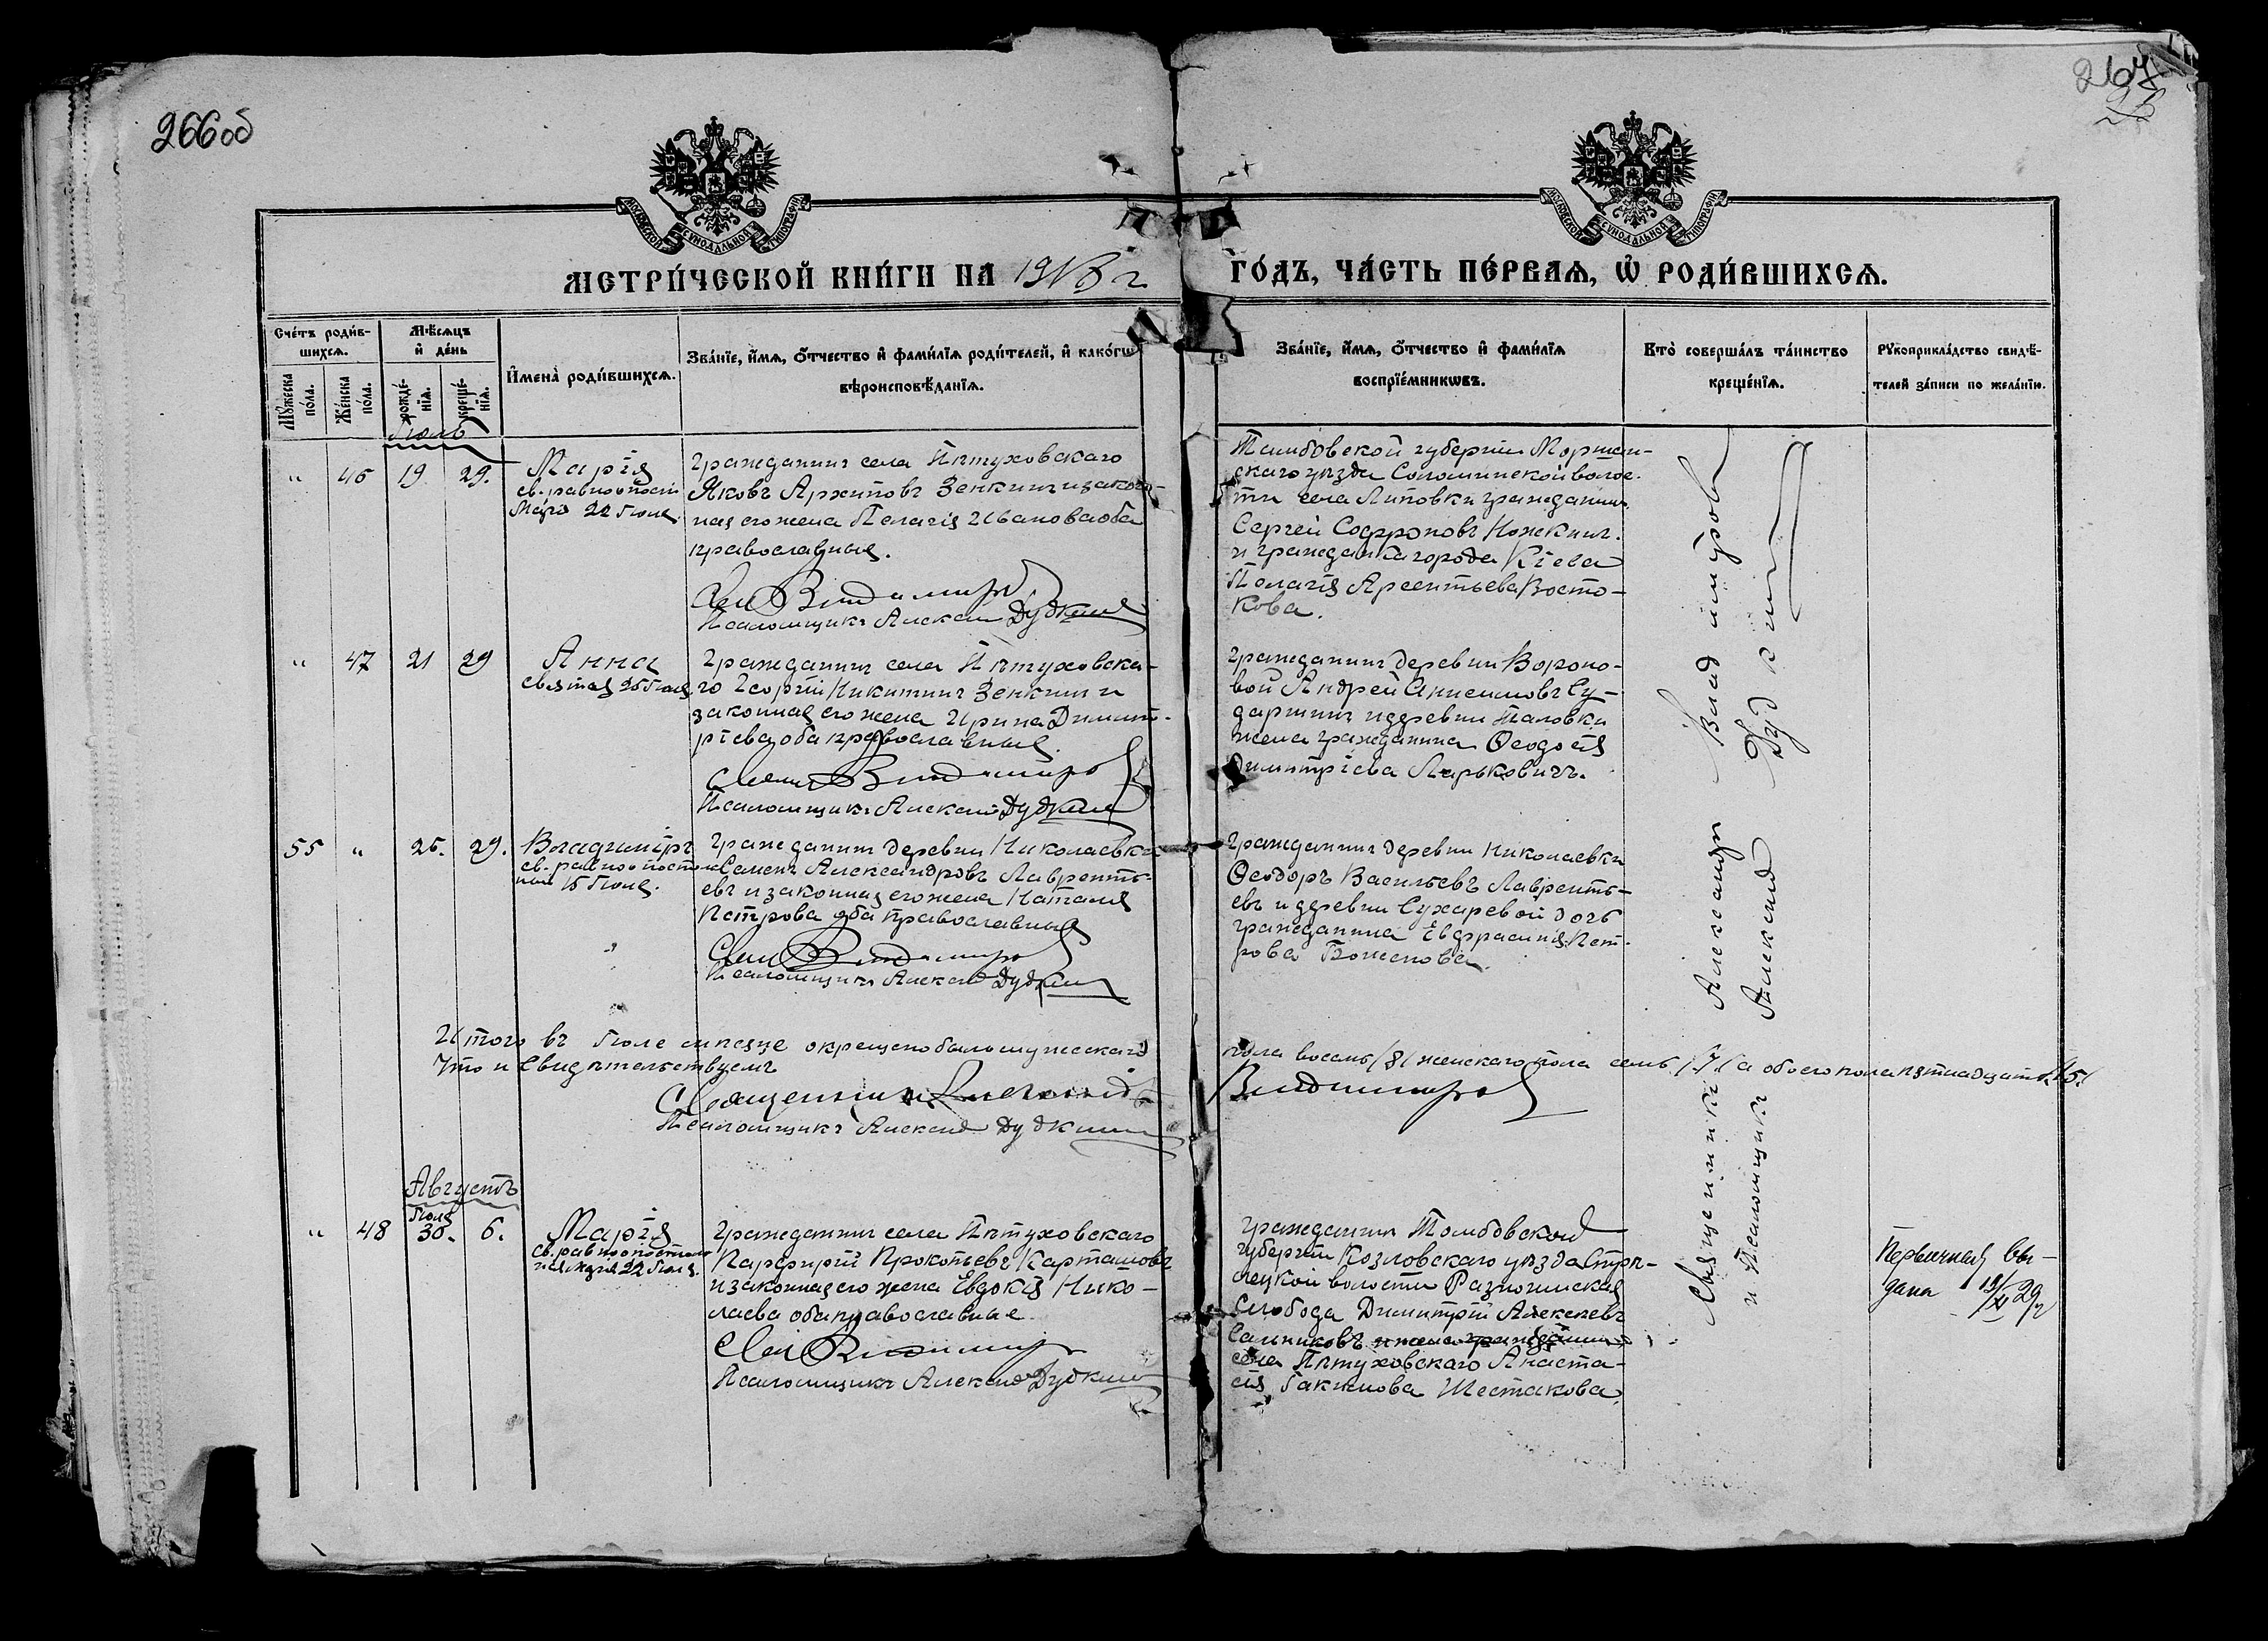 266об
267
МОСКОВСКОЙ СѴНОДАЛЬНОЙ ТИПОГРАФІИ
МОСКОВСКОЙ СѴНОДАЛЬНОЙ ТИПОГРАФІИ
МЕТРИ́ЧЕСКОЙ КНИ́ГИ НА 1918 г
ГО́ДЪ, ЧА́СТЬ ПЕ́РВАѦ, Ѡ҆ РОДИ́ВШИХСѦ.
Сче́тъ роди́в-
шихсѧ.
Мꙋ́жеска по́ла.
Же́нска по́ла.
Мѣ́сѧцъ
и҆ де́нь
рожде́-
нїѧ.
креще́-
нїѧ.
И҆мена̀ роди́вшихсѧ.
Зва́нїе, и҆́мѧ, ѻ҆́тчество и҆ фами́лїѧ роди́телей, и҆ како́гѡ
вѣроисповѣ́данїѧ.
Зва́нїе, и҆́мѧ, ѻ҆́тчество и҆ фами́лїѧ
воспрїе́мникѡвъ.
Кто̀ соверша́лъ та́инство
креще́нїѧ.
Рꙋкоприкла́дство свидѣ́-
телей за́писи по жела́нїю.
Іюль
" 46 19 29.
Марія
св. равноапост
Марія 22 Іюля
Гражданин села Пѣтуховскаго
Яковъ Архиповъ Зенкин и закон-
ная его жена Пелагія Иванова оба
православные.
Свящ Владимиров
Псаломщикъ Алексей Дудкин
Тамбовской губернии Моршан-
скаго уѣзда Соломинской волос-
ти села Липовки гражданин
Сергей Софроновъ Ножкин.
и гражданка города Кіева
Пелагія Арсентьева Восто-
кова.
" 47 21 29
Анна
святая 25 Іюля
Гражданин села Пѣтуховска-
го Георгій Никитин Зенкин и
законная его жена Ирина Димит-
ріева оба православные.
Свящ Владимиров
Псаломщикъ Алексей Дудкин
Гражданин деревни Вороно-
вой Андрей Анисимовъ Су-
даркин и деревни Таловки
жена гражданина Ѳеодосія
Димитріева Ларьковичъ.
55 " 25. 29.
Владиміръ
св. равноапостол
ный 15 Іюля.
Гражданин деревни Николаевки
Семенъ Александровъ Лавренть-
евъ и законная его жена Наталія
Петрова оба православные
Свящ Владимиров
Псаломщикъ Алексей Дудкин
Гражданин деревни Николаевки
Ѳеодоръ Васильевъ Лавренть-
евъ и деревни Сухаревой дочь
гражданина Евфрасинія Пет-
рова Боженова.
Итого въ Іюле месяце окрещено было мужескаго пола восемь /8/ женскаго пола семь /7/ а обоего пола пятнадцать /15/
Что и Свидѣтельствуемъ
Священникъ Александръ Владимиров
Псаломщикъ Алексей Дудкин
Августъ
" 48 Іюля 30. 6.
Марія
св. равноапостоль
ная Марія 22 Іюля.
Гражданин села Пѣтуховскаго
Парфирій Прокопьевъ Карташовъ
и законная его жена Евдокія Нико-
лаева оба православные
Свящ Владимиров
Псаломщикъ Алексей Дудкин
Гражданин Тамбовской
губерніи Козловскаго уѣзда Стрѣ-
лецкой волости
Слобода Димитрій Алексеевъ
Сальниковъ и жена гражданина
села Пѣтуховскаго Анаста-
сія Іакимова Шестакова.
Священникъ Александръ Владимиров
и Псаломщикъ Алексей Дудкин
Первичная вы-
дана 19/XI 29 г